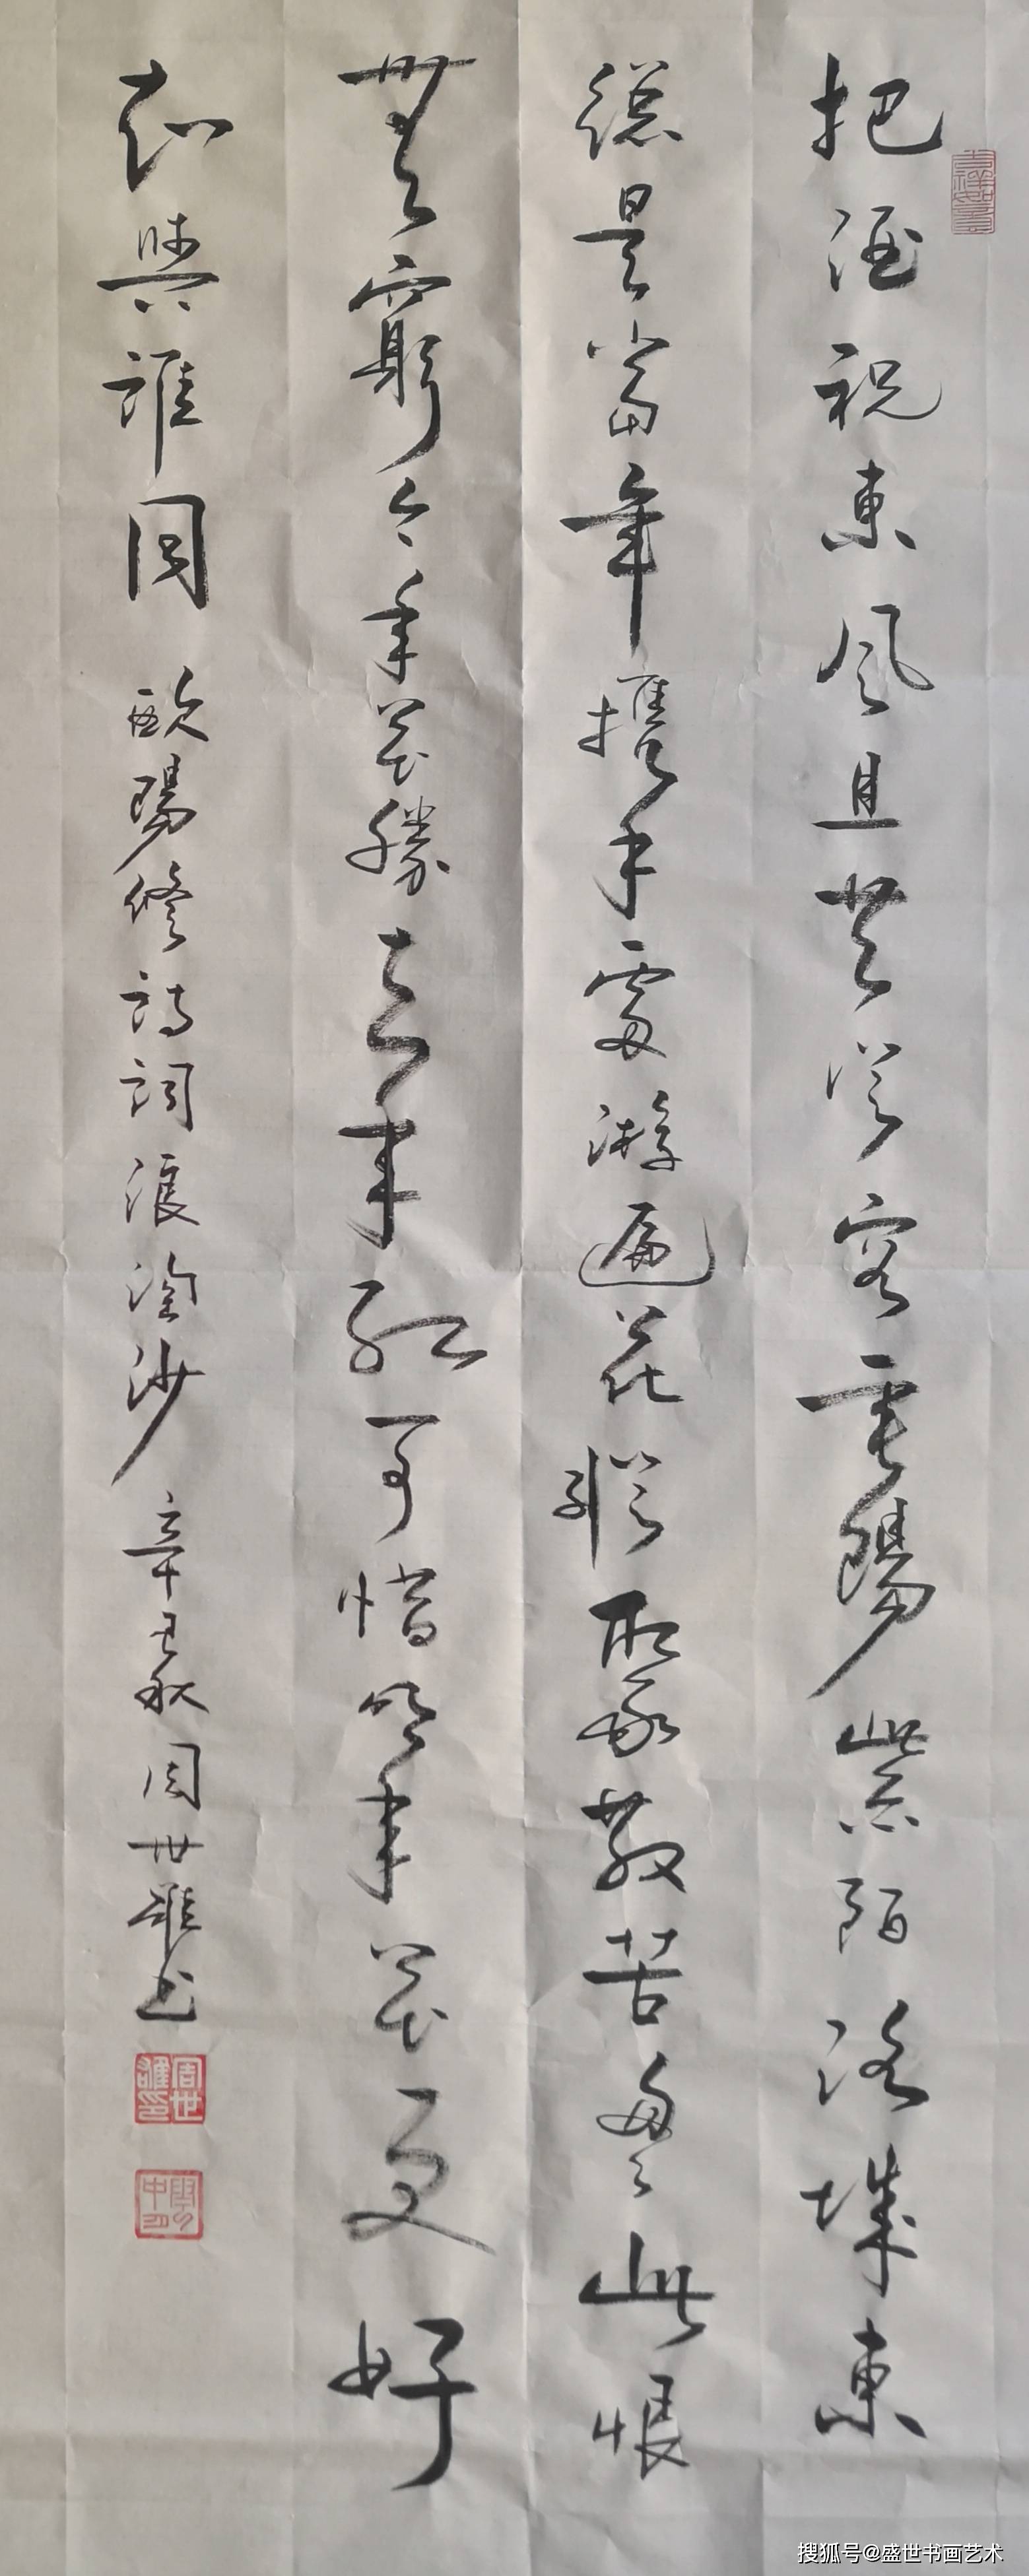 把酒祝東風且共從容垂陽紫陌洛城東
總是當年攜手處游遍花聚散苦匆匆此恨
無窮今年花勝去年紅可惜明年花更好
知與誰同 歐陽修詩詞浪淘沙 辛丑秋周世雄書
搜狐号@盛世书画艺术